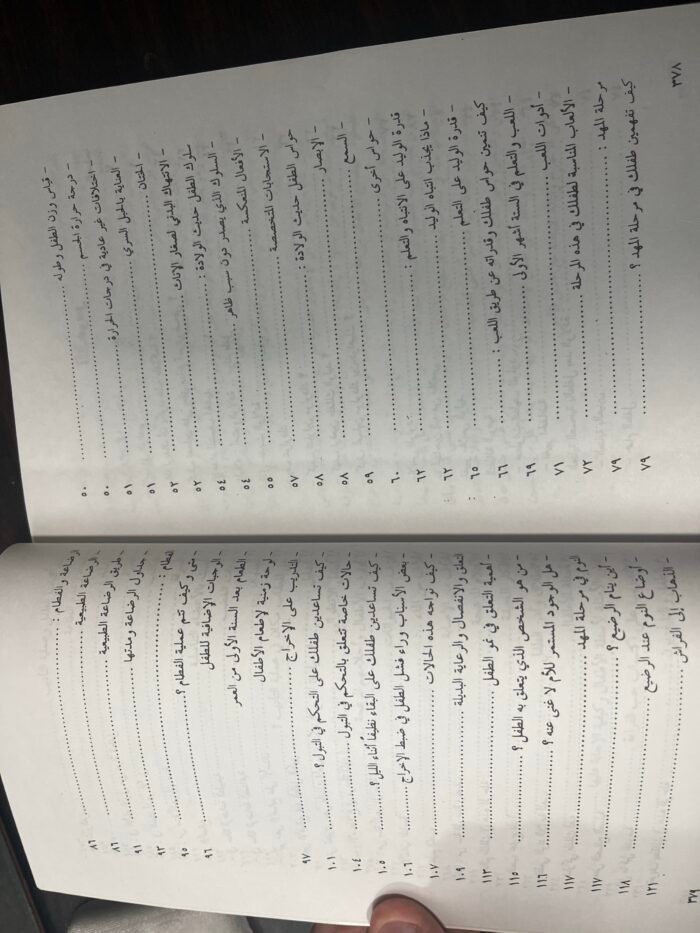 - قياس وزن الطفل وطوله ........ ٥٠
- درجة حرارة الجسم ........ ٥٠
- اختلافات غير عادية في درجات الحرارة ........ ٥١
- العناية بالحبل السري ........ ٥١
- الختان ........ ٥٢
- الانتهاك البدني لصغار الإناث ........ ٥٢
سلوك الطفل حديث الولادة : ........ ٥٤
- السلوك الذي يصدر دون سبب ظاهر ........ ٥٤
- الأفعال المنعكسة ........ ٥٥
- الاستجابات المتخصصة ........ ٥٧
حواس الطفل حديث الولادة : ........ ٥٨
- الإبصار ........ ٥٨
- السمع ........ ٥٩
- حواس أخرى ........ ٦٠
قدرة الوليد على الانتباه والتعلم : ........ ٦٢
- ماذا يجذب انتباه الوليد ........ ٦٢
- قدرة الوليد على التعلم ........ ٦٥
كيف تنمين حواس طفلك وقدراته عن طريق اللعب : ........ ٦٦
- اللعب والتعلم في الستة أشهر الأولى ........ ٦٩
- أدوات اللعب ........ ٧١
- الألعاب المناسبة لطفلك في هذه المرحلة ........ ٧٢
مرحلة المهد : ........ ٧٩
كيف تفهمين طفلك في مرحلة المهد ؟ ........ ٧٩
٣٧٨
الرضاعة والفطام : ........
- الرضاعة الطبيعية ........ ٨٦
- طرق الرضاعة الطبيعية ........ ٨٦
- جداول الرضاعة ومدتها ........ ٩١
الفطام : ........ ٩٢
- متى وكيف تتم عملية الفطام ؟ ........ ٩٥
- الوجبات الإضافية للطفل ........ ٩٦
- الطعام بعد السنة الأولى من العمر
- لوحة زمنية لإطعام الأطفال
- التدريب على الإخراج ........ ٩٧
- كيف تساعدين طفلك على التحكم في التبول ؟ ........ ١٠١
- حالات خاصة تتعلق بالتحكم في التبول ........ ١٠٤
- كيف تساعدين طفلك على البقاء نظيفاً أثناء الليل ؟ ........ ١٠٥
- بعض الأسباب وراء فشل الطفل في ضبط الإخراج ........ ١٠٦
- كيف تواجه هذه الحالات ........ ١٠٧
التعلق والانفصال والرعاية البديلة ........ ١٠٩
- أهمية التعلق في نمو الطفل ........ ١١٢
- من هو الشخص الذي يتعلق به الطفل ؟ ........ ١١٥
- هل الوجود المستمر للأم لا غنى عنه ؟ ........ ١١٦
النوم في مرحلة المهد ........ ١١٧
- أين ينام الرضيع ؟ ........ ١١٧
- أوضاع النوم عند الرضيع ........ ١١٨
- الذهاب إلى الفراش ........ ١٢١
٣٧٩